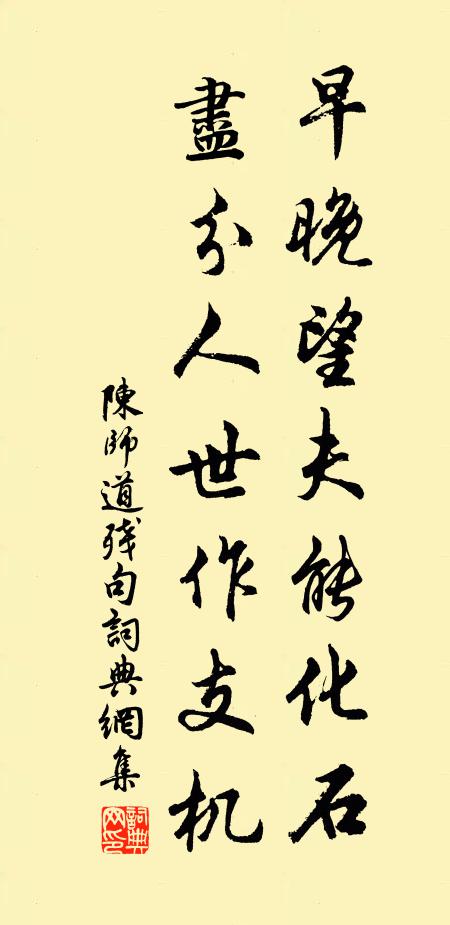 早晚望夫能化石
盡分人世作支机
陳師道殘句詞典網集
詞典网印